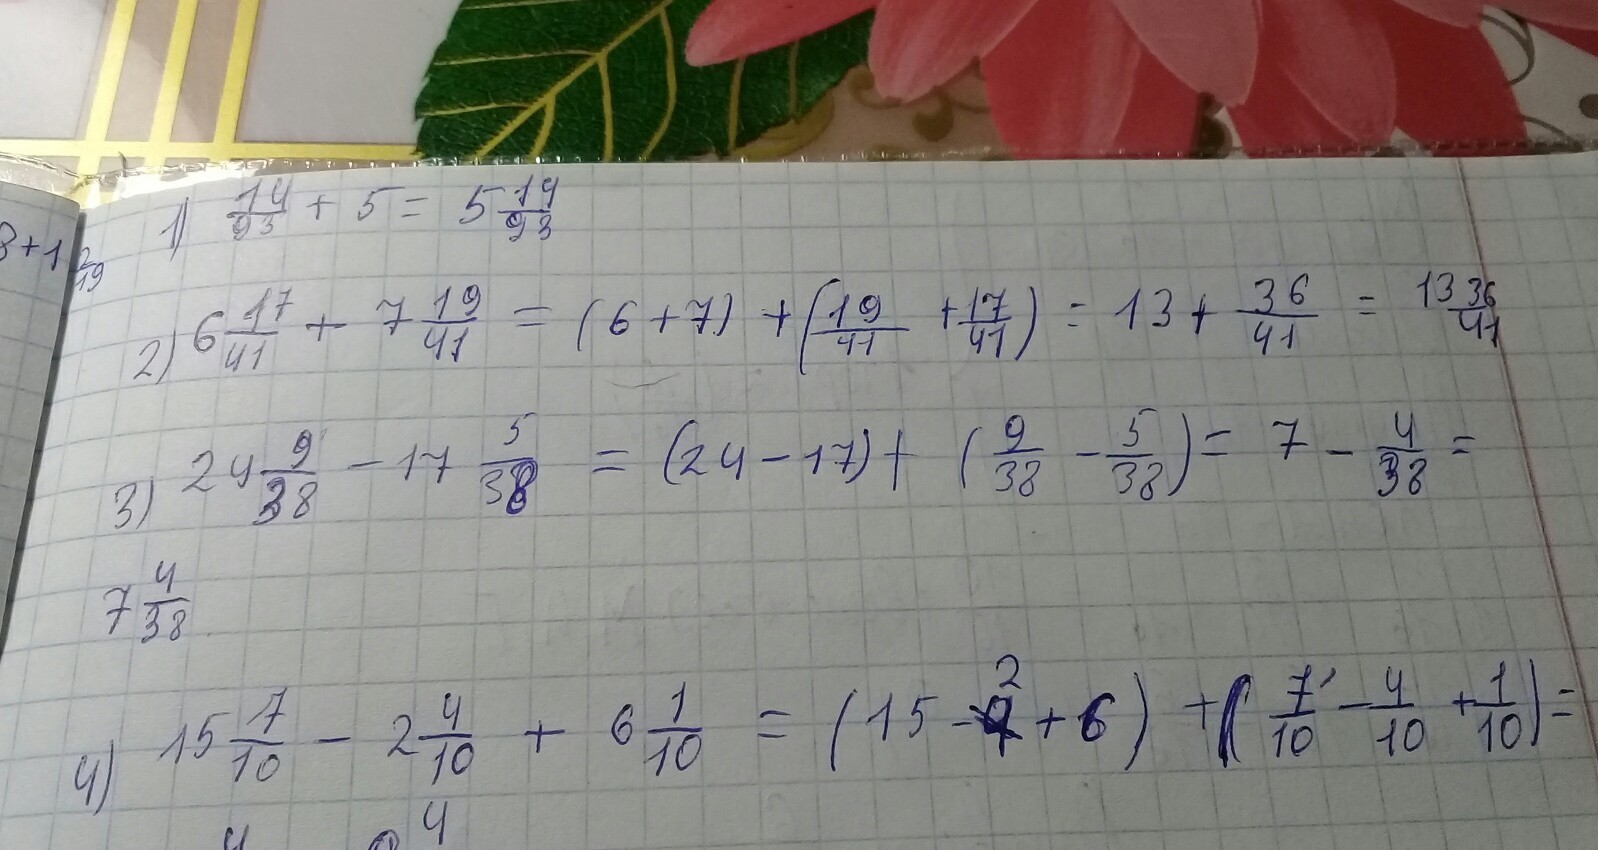 3+1 2/19
1) 14/93 + 5 = 5 14/93
2) 6 17/41 + 7 19/41 = (6+7) + (19/41 + 17/41) = 13 + 36/41 = 13 36/41
3) 24 9/38 - 17 5/38 = (24 - 17) + (9/38 - 5/38) = 7 - 4/38 =
7 4/38
4) 15 7/10 - 2 4/10 + 6 1/10 = (15 - 2 + 6) + (7/10 - 4/10 + 1/10) =